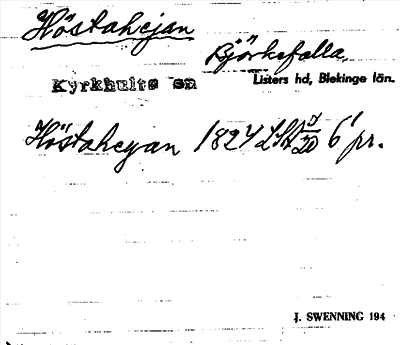 Höstahejan
Björkefalla.
Kyrkhults sn
Listers hd, Blekinge län.
Höstahejan 1824 LSA 5/20 6' pr.
J. SWENNING 194